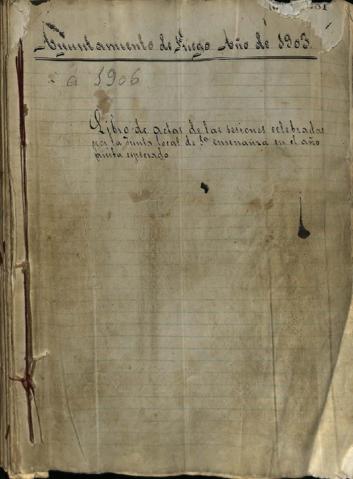 Ayuntamiento de Priego Año de 1903.
a 1906
Libro de actas de las sesiones celebradas
por la Junta local de 1ª enseñanza en el año
arriba expresado